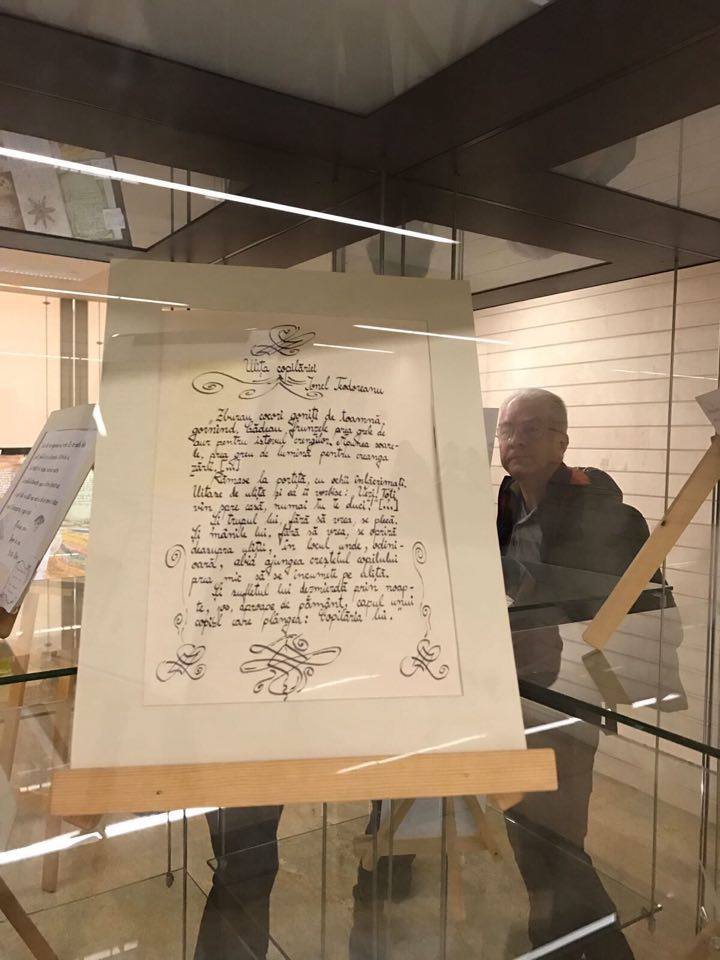 Ulița copilăriei
Ionel Teodoreanu
"Zburau cocori goniți de toamnă,
gornind, cădeau frunzele prea grele de
aur pentru istovul crengilor, rodnrea soare-
le, prea greu de lumină pentru creanga
zării. [...]
Rămase la portiță, cu ochii înlăcrimați.
Uitare de uliță și ea îi vorbise: Vezi! Toți
vin spre casă, numai tu te duci! [...]
Și trupul lui, fără să vrea, se plecă.
Și mânile lui, fără să vrea, se opriră
deasupra uliții, în locul unde, odini-
oară, abia ajungea creștetul copilului
prea mic să se încumete pe uliță.
Și sufletul lui dezmierdă prin noap-
te, jos, aproape de pământ, capul unui
copil care plângea: Copilăria lui."